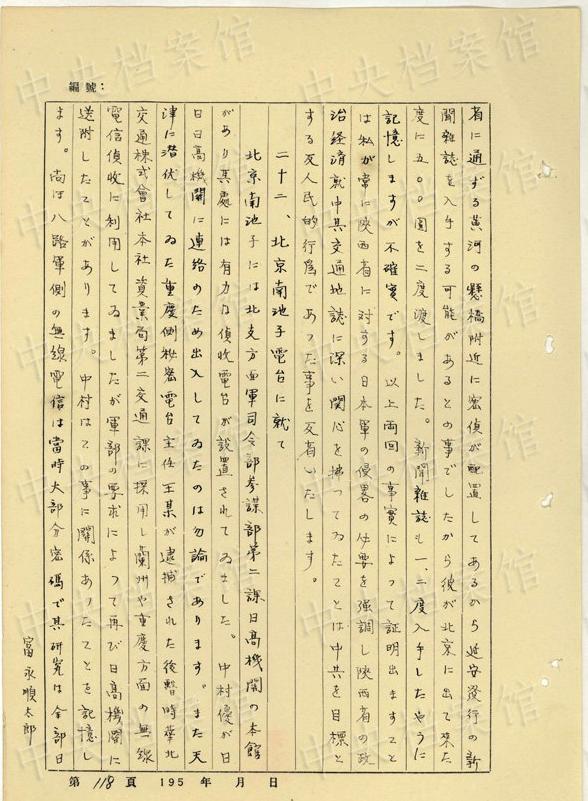 編號：
省に通ずる黄河の懸橋附近に密偵が配置してあるから延安發行の新
聞雜誌を入手する可能があるとの事でしたから彼が北京に出て来た
度に五〇〇圓を二度渡しました。新聞雜誌も一、二度入手したやうに
記憶しますが不確実です。以上両回の事實によって証明出ますこと
は私が常に陝西省に対する日本軍の侵畧の必要を強調し陝西省の政
治経済就中共交通地誌に深い関心を拂ってゐたことは中共を目標と
する反人民的行為であった事を反省いたします。
二十二、北京南池子電台に就て
北京南池子には北支方面軍司令部参謀部第二課日高機関の本館
があり其處には有力な偵收電台が設置されてゐました。中村優が日
日日高機関に連絡のため出入してゐたのは勿論であります。また天
津に潜伏してゐた重慶側秘密電台主任王某が逮捕された後暫時華北
交通株式會社本社資業局第二交通課に採用し蘭州や重慶方面の無線
電信偵收に利用してゐましたが軍部の要求によって再び日高機関に
送附したことがあります。中村はこの事に関係あったことを記憶し
ます。尚ほ八路軍側の無線電信は當時大部分密碼で其研究は全部日
富永順太郎
第 118 頁 195 年 月 日
中央档案馆